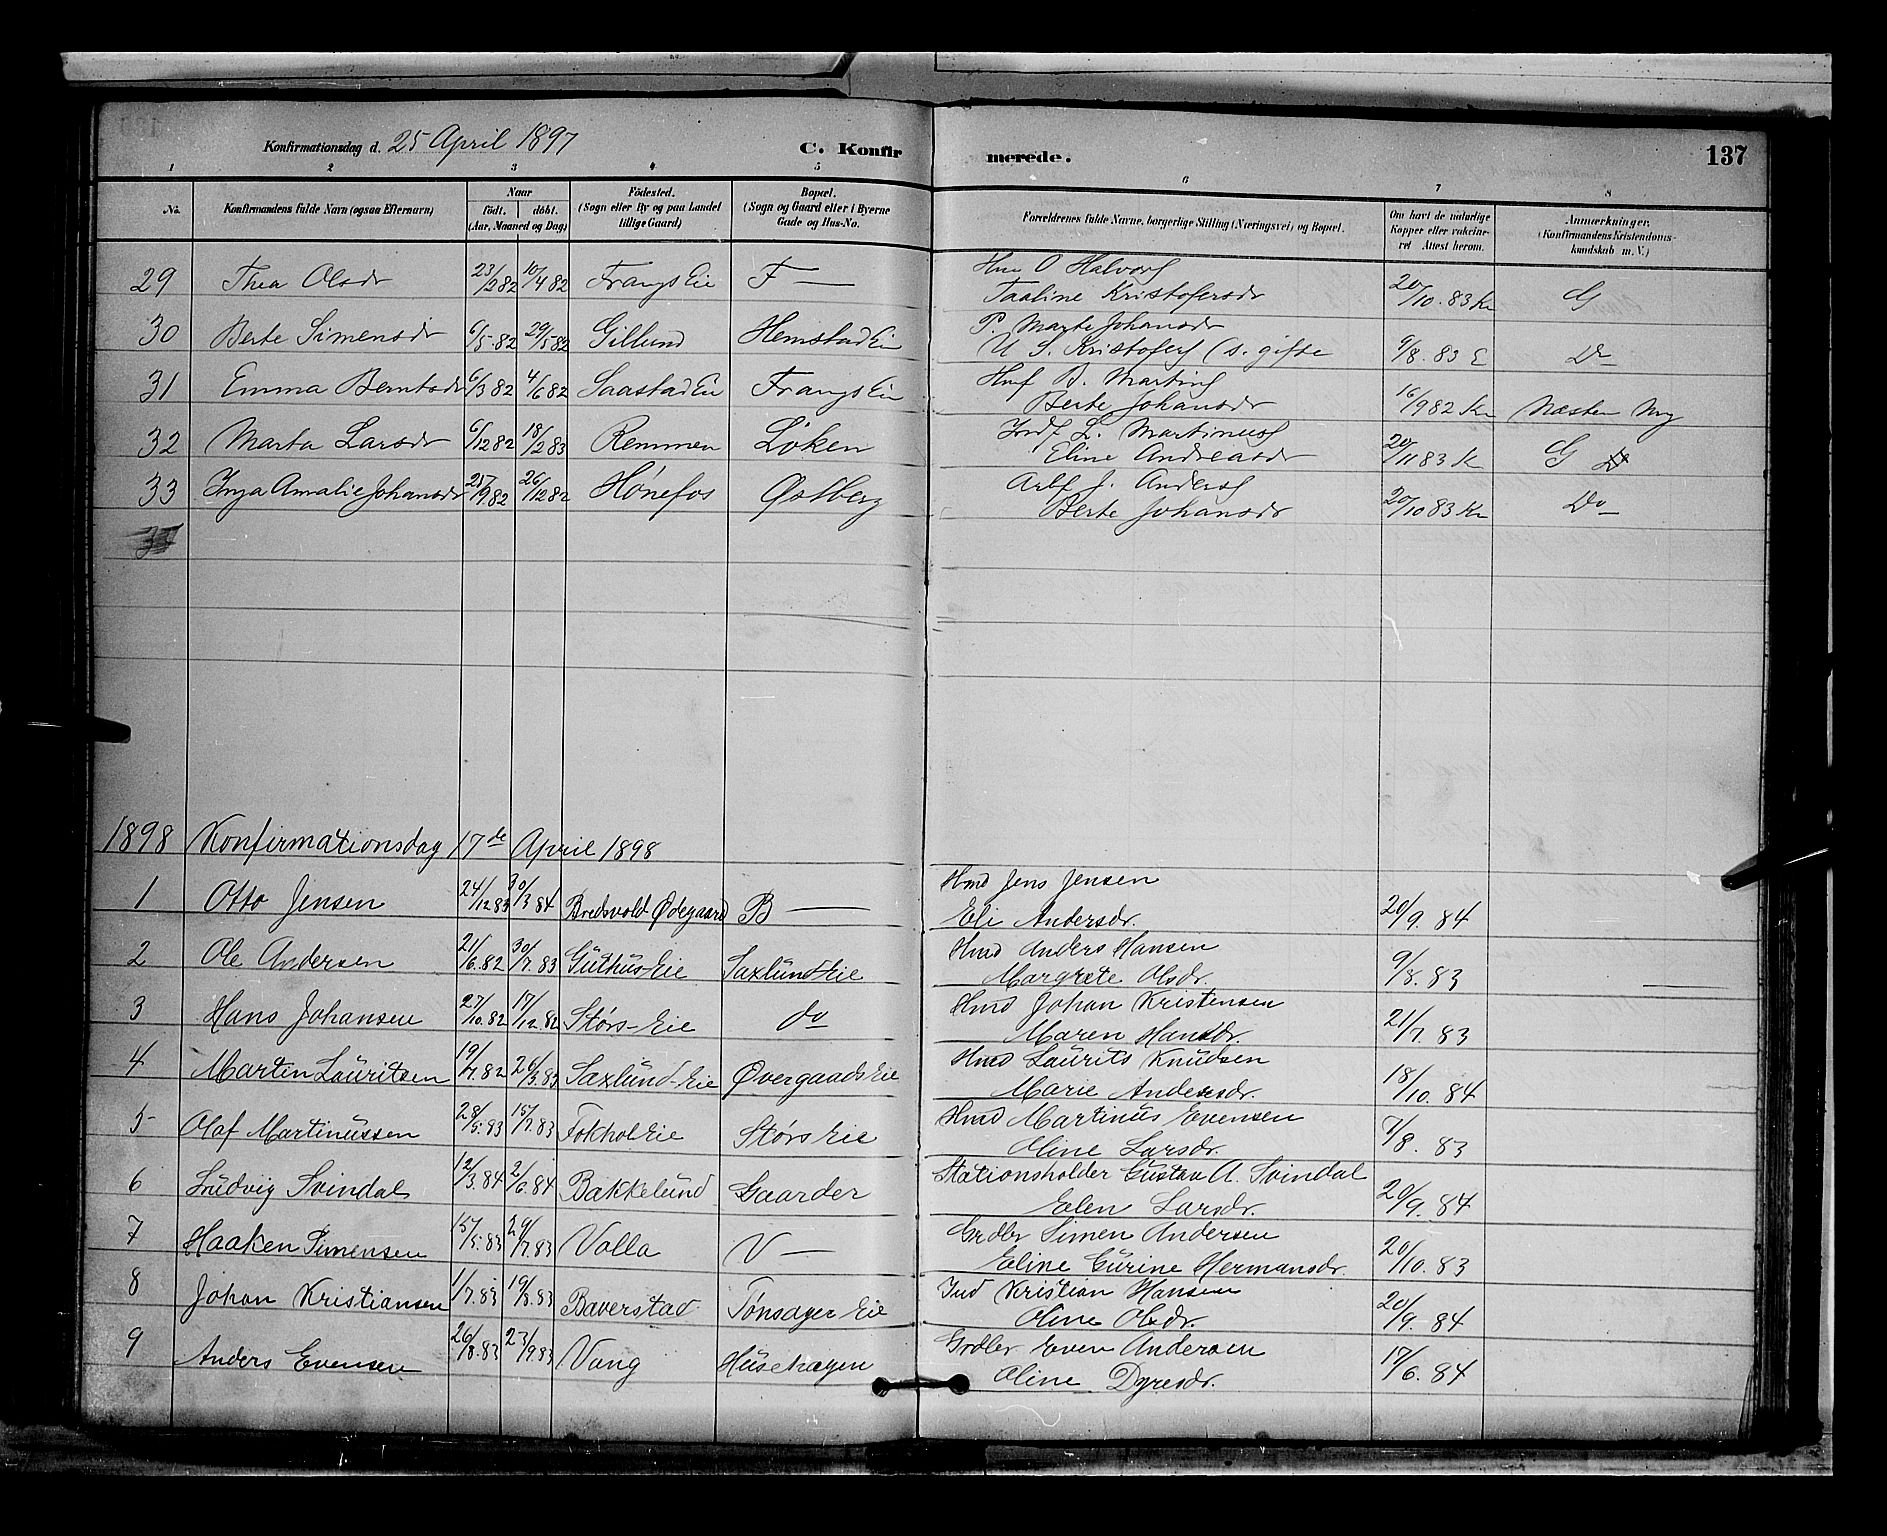 Konfirmationsdag d. 25 April 1897 C. Konfirmerede. 137
1 2 3 4 5 6 7 8
No. Konfirmandens fulde Navn (ogsaa Efternavn) Naar født. døbt. (Aar, Maaned og Dag) Fødested. (Sogn eller By og paa Landet tillige Gaard) Bopæl. (Sogn og Gaard eller i Byerne Gade og Hus-No. Forældrenes fulde Navne, borgerlige Stilling (Næringsvei) og Bopæl. Om havt de naturlige Kopper eller vakcineret Attest herom. Anmærkninger. (Konfirmandens Kristendomskundskab m. V.)
29 Thea Olsdr 23/2 82 10/4 82 Frangs Eie F — Hm O Halvors Taaline Kristofersdr 20/10. 83 Kr G
30 Berte Simensdr 6/5. 82 29/5 82 Gillund Hemstad Eie P. Marte Johansdr U S. Kristofers (s. gifte 9/8. 83 E Do
31 Emma Berntsdr 6/3 82 4/6 82 Saastad Eie Frangs Eie Hmf B. Martins Berte Johansdr 16/9 82 Kr Næsten Mg
32 Marta Larsdr 6/12 82 18/2 83 Remmen Løken Indf L. Martinus Eline Andreasdr 20/11 83 Kr G
33 Inga Amalie Johansdr 25/9 82 26/12 82 Hønefos Østberg Arbf J. Anders Berte Johansdr 20/10 83 Kr Do
1898 Konfirmationsdag 17de April 1898
1 Otto Jensen 24/12 83 30/3 84 Bredsvold Ødegaard B — Hmd Jens Jensen Eli Andersdr. 20/9. 84
2 Ole Andersen 21/6. 82 30/7. 83 Guthus Eie Saxlund Eie Hmd Anders Hansen Margrete Olsdr. 9/8. 83
3 Hans Johansen 27/10. 82 17/12 82 Størs-Eie do Hmd Johan Kristensen Maren Hansdr. 21/7. 83
4 Marten Lauritsen 19/7. 82 Saxlund-Eie Øvergaads Eie Hmd Laurits Knudsen Marie Andersdr. 18/10. 84
5 Olaf Martinussen 28/5. 83 15/7. 83 Fokhol Eie Størs Eie Hmd Martinus Evensen Oline Larsdr. 7/8. 83
6 Ludvig Svindal 12/3. 84 2/6. 84 Bakkelund Gaarder Stationsholder Gustav A. Svindal Elen Larsdr. 20/9. 84
7 Haaken Simensen 15/5. 83 29/7. 83 Valla V — Grdbr Simen Andersen Eline Gurine Hermansdr. 20/10. 83
8 Johan Kristiansen 1/7. 83 19/8. 83 Baverstad Tønsager Eie Ind Kristian Hansen Oline Olsdr. 20/9. 84
9 Anders Evensen 26/8. 83 23/9. 83 Vang Husehagen Grdbr Even Andersen Oline Dyresdr. 17/6. 84